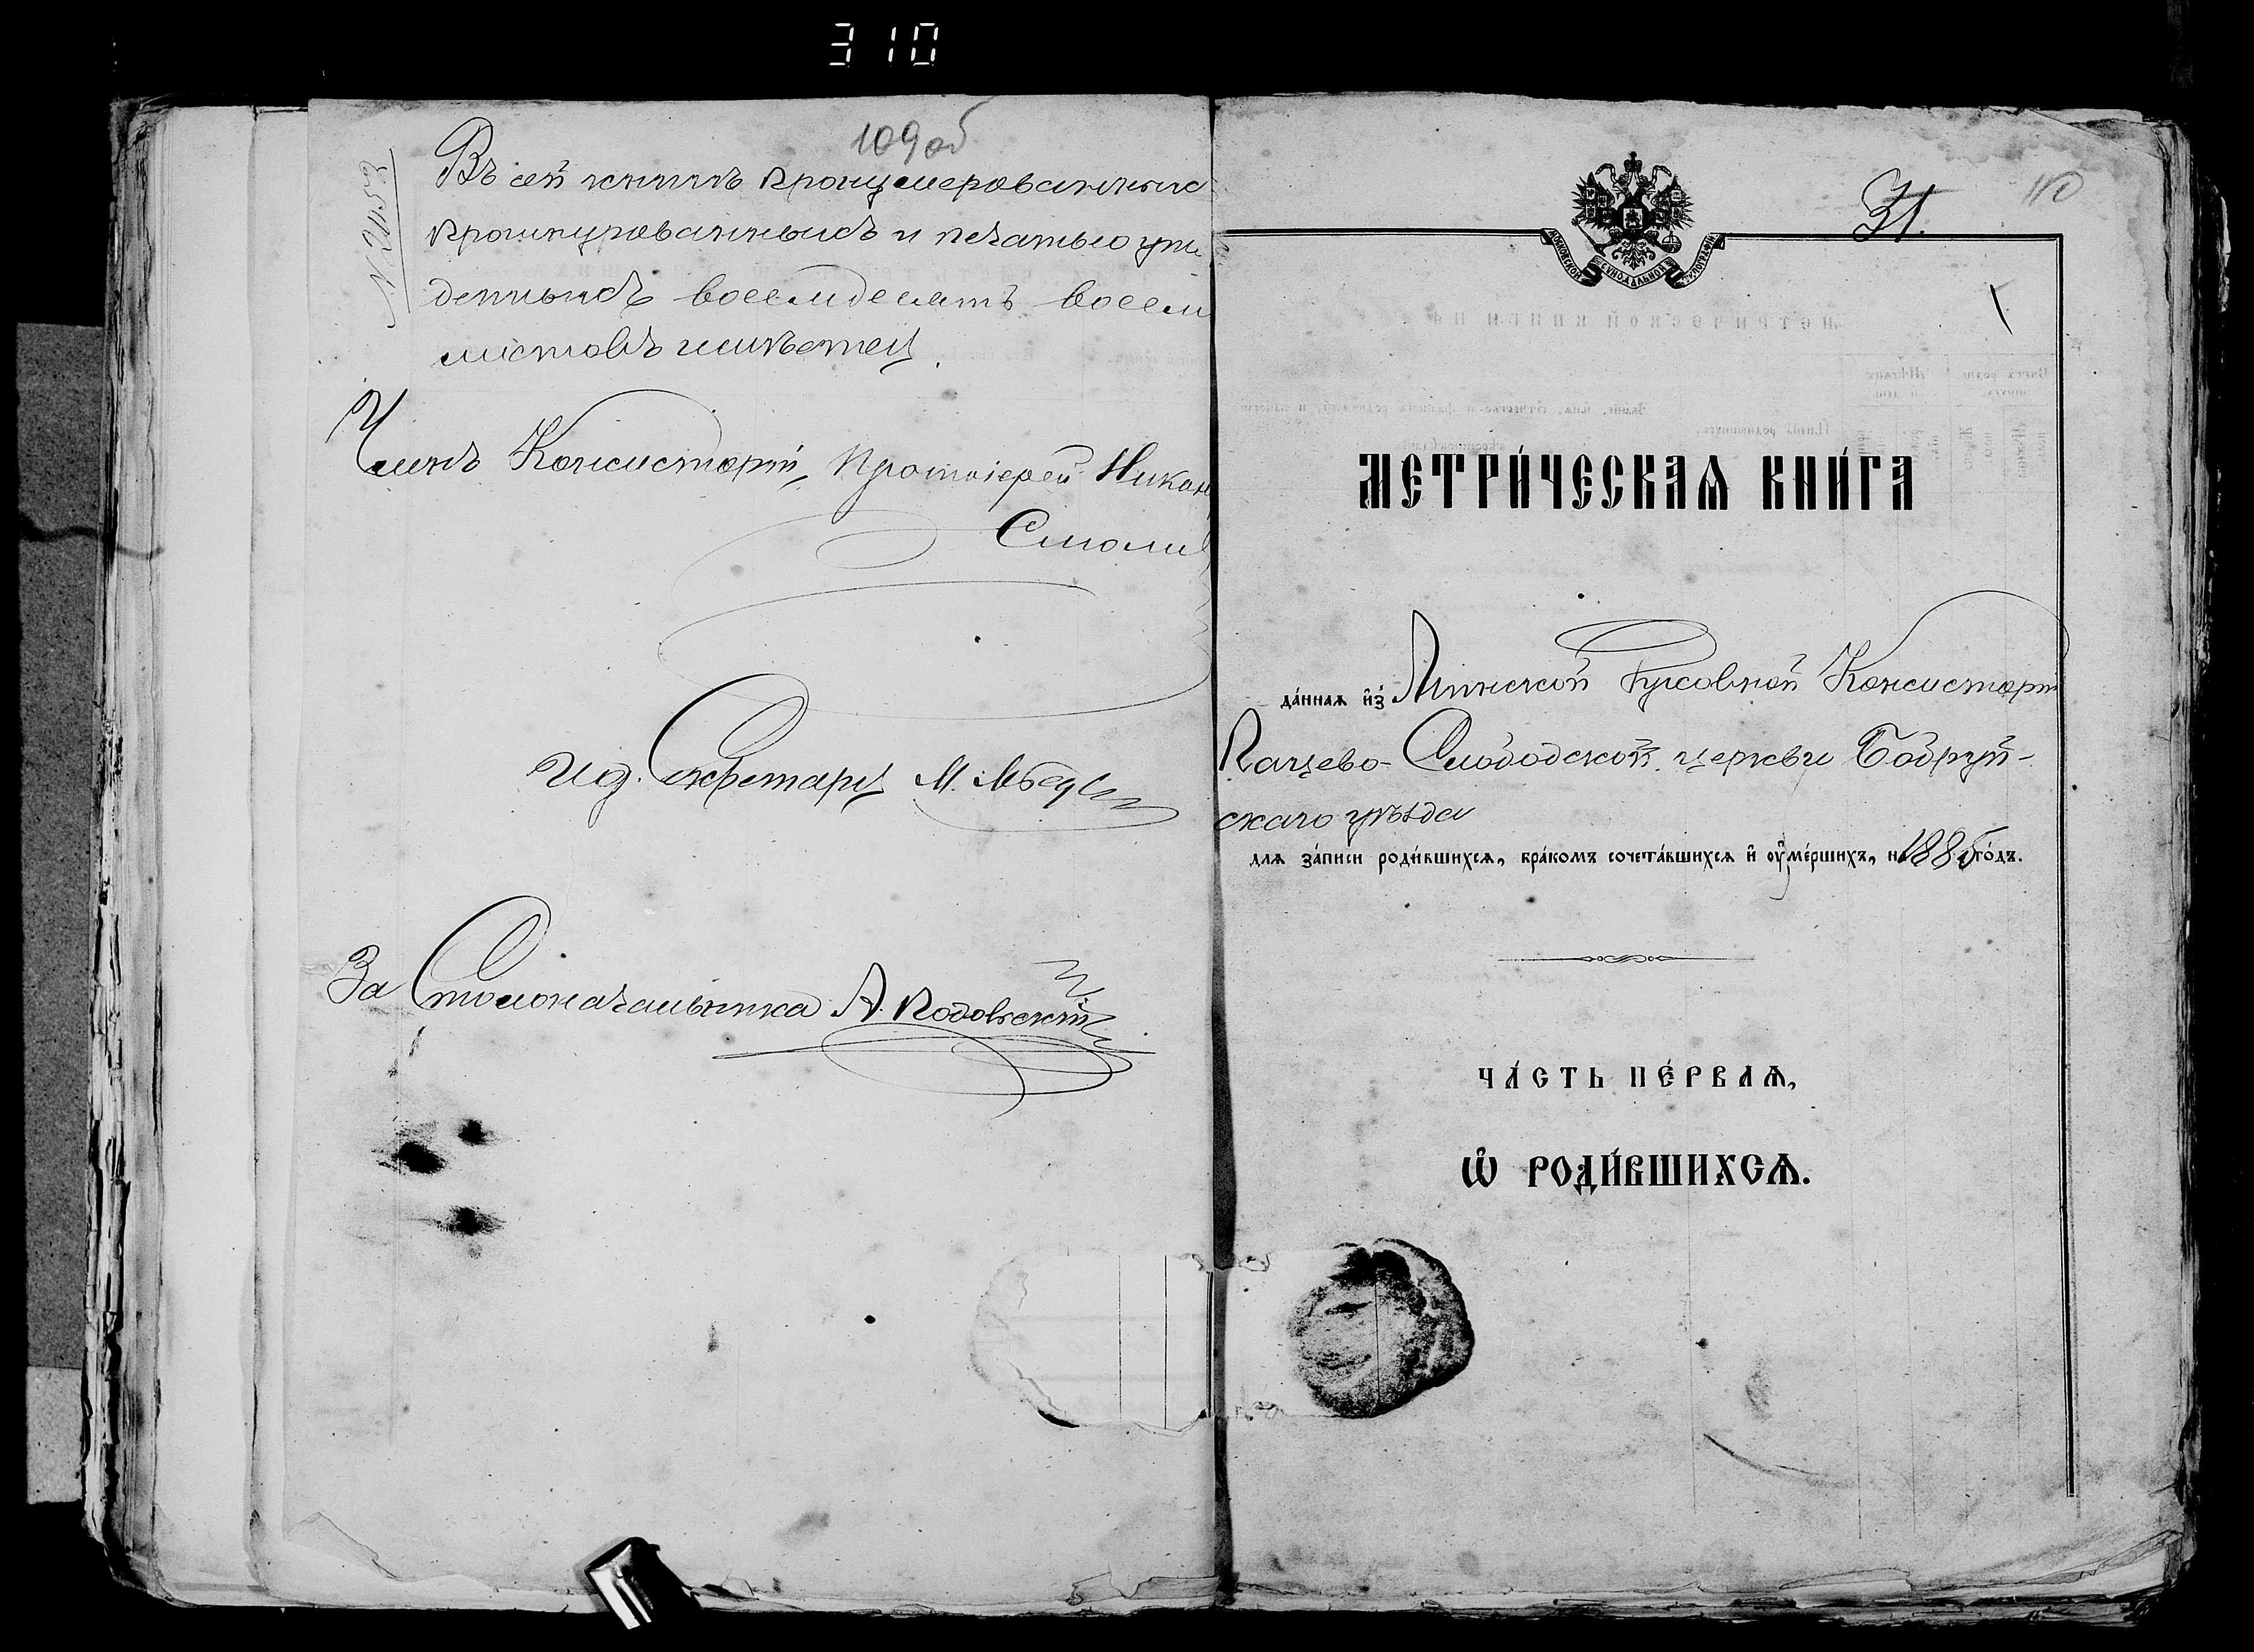 310
109 об
№ 21153
Въ сей книгѣ пронумерованныхъ
прошнурованныхъ и печатью утвер
жденныхъ восемьдесятъ восемь
листовъ имѣется.
Членъ Консисторіи, Протоіерей Никан
Смоли
Ид. Секретаря М.
За Столоначальника А.
31.
110
1
МОСКОВСКОЙ СѴНОДАЛЬНОЙ ТИПОГРАФІИ
МЕТРИ́ЧЕСКАѦ КНИ́ГА
да́ннаѧ и҆з̾ Минской Духовной Консисторіи
Слободской церкви Бобруй-
скаго уѣзда
длѧ за́писи роди́вшихсѧ, бра́комъ сочета́вшихсѧ и҆ ᲂу҆ме́ршихъ, на 1885 го́дъ.
ЧА́СТЬ ПЕ́РВАѦ,
Ѡ҆ РОДИ́ВШИХСѦ.